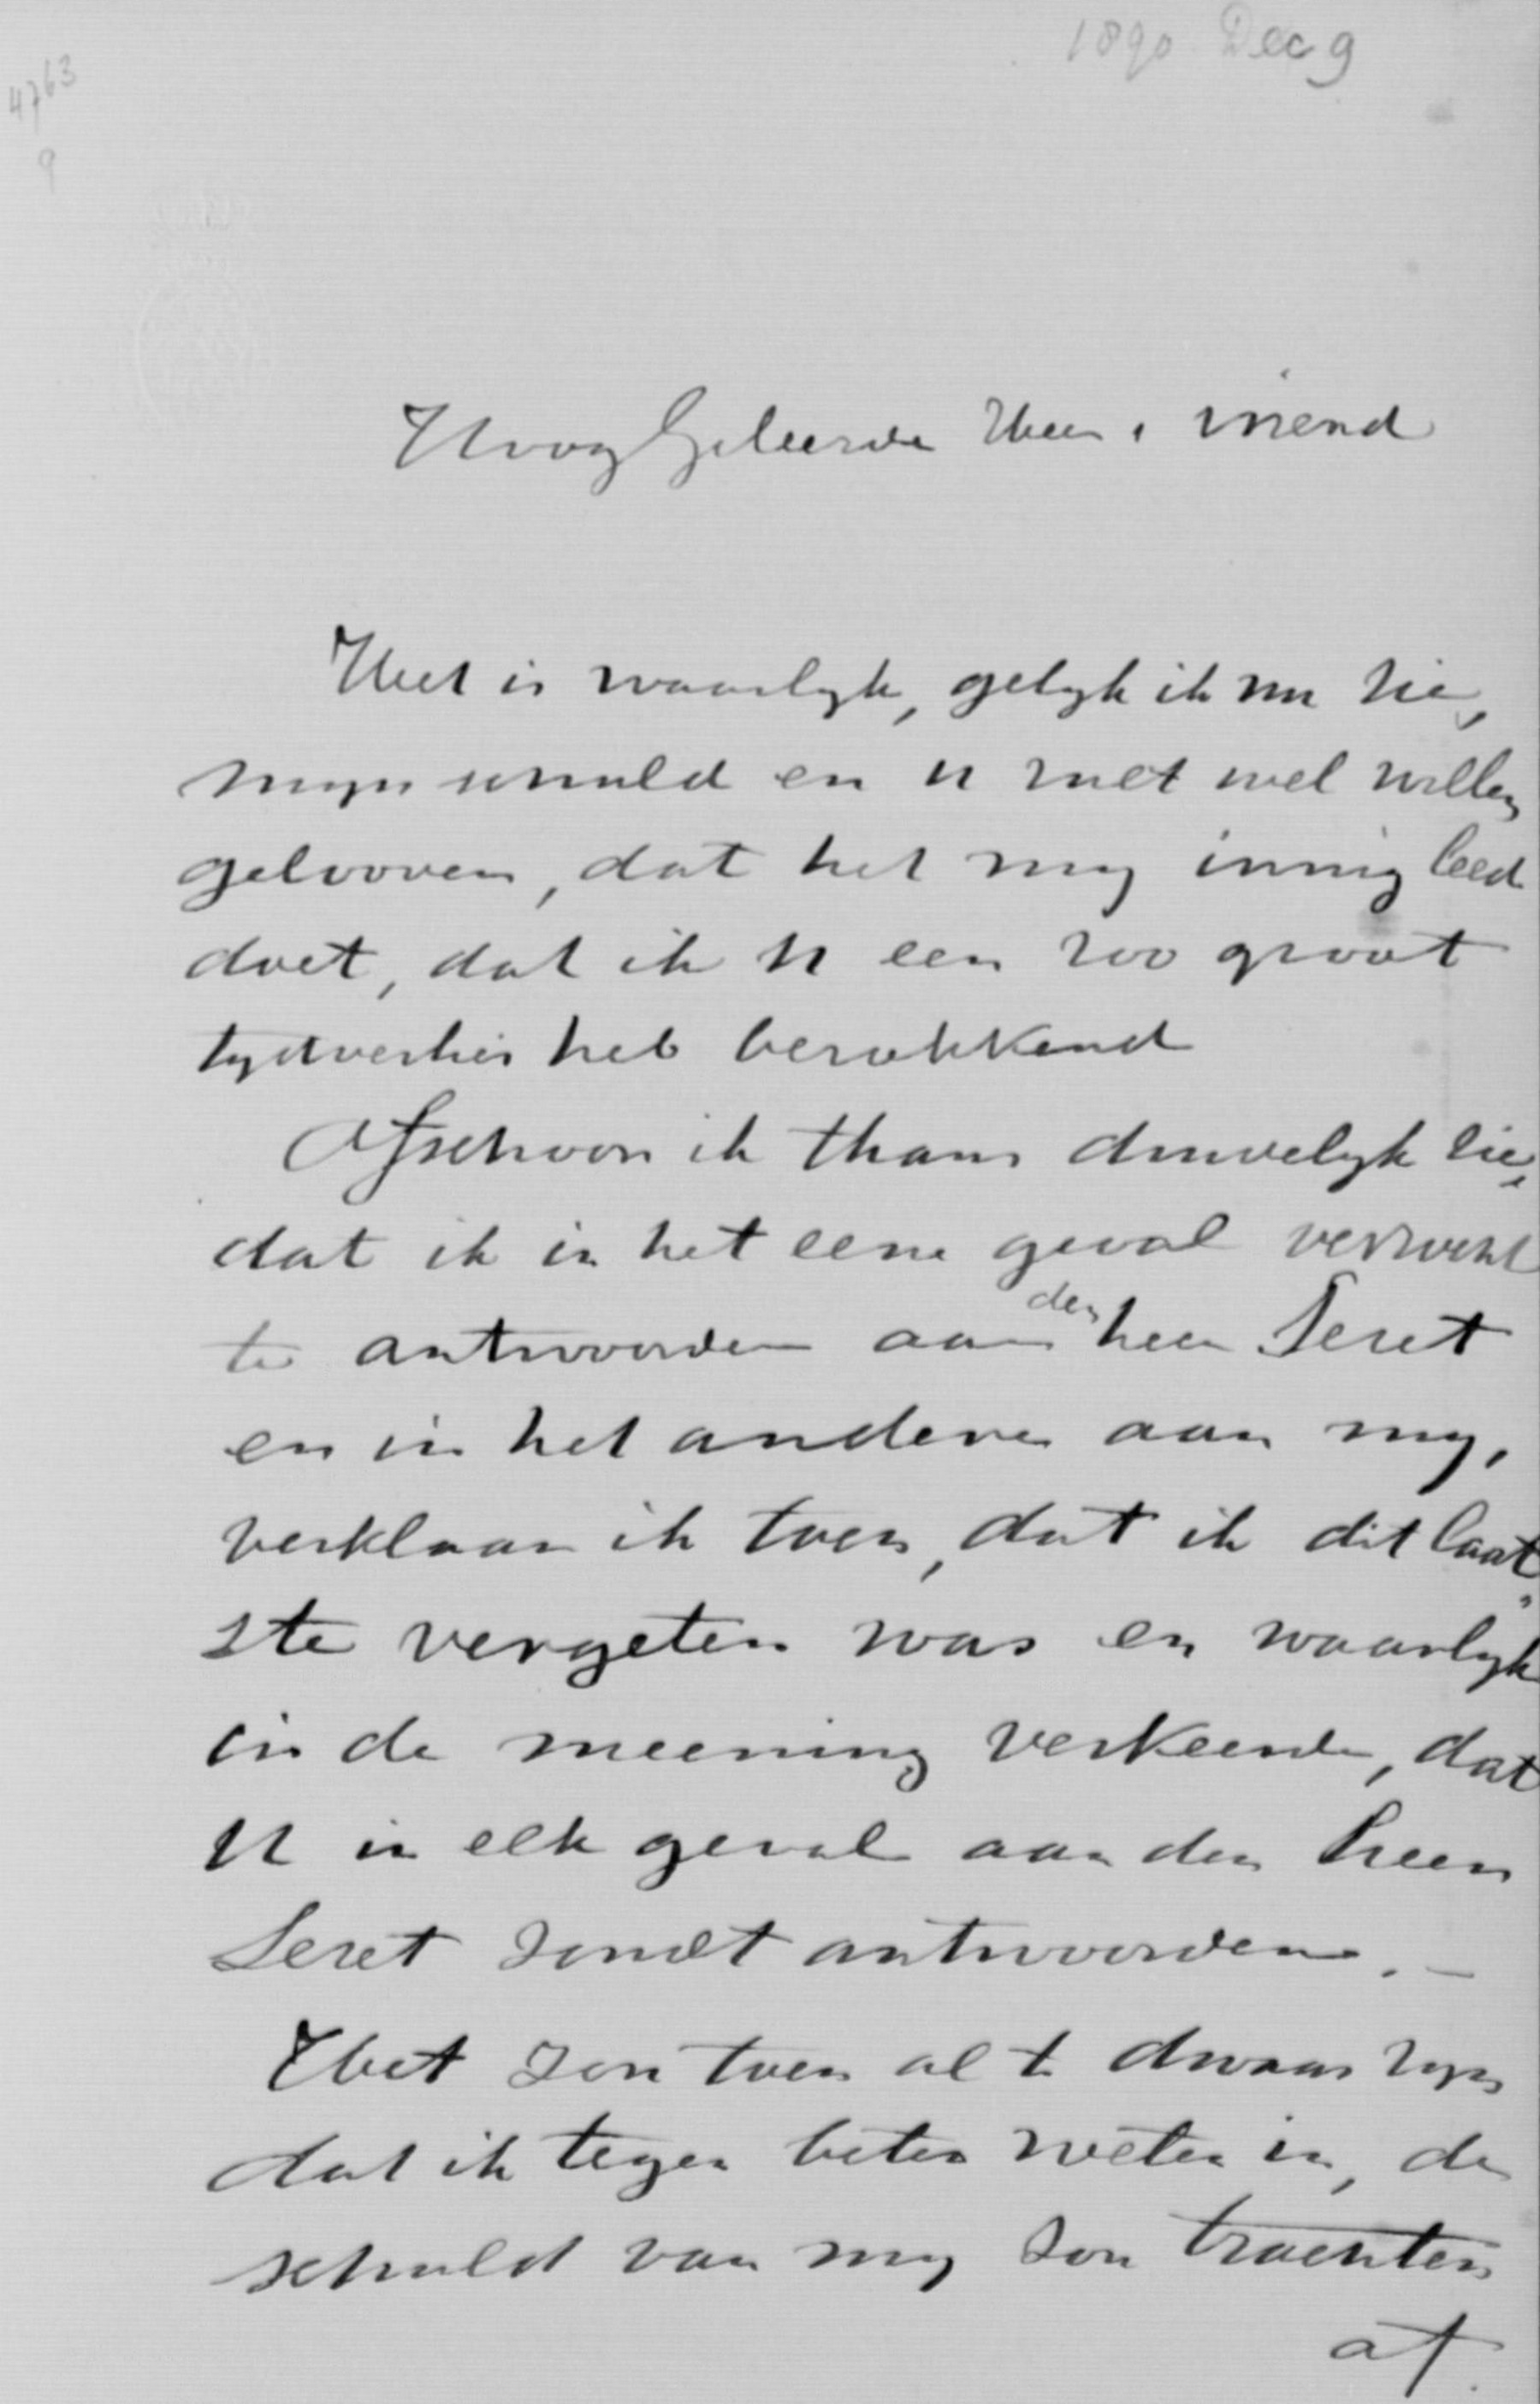 1890 Dec 9
4763
9
HoogGeleerde Heer & vriend
Het is waarlyk, gelyk ik nu zie,
myn schuld en U moet wel willen
gelooven, dat het my innig leed
doet, dat ik U een zoo groot
tydverlies heb berokkend
Ofschoon ik thans duidelyk zie,
dat ik in het eene geval verzocht
te antwoorden aan den heer Seret
en in het andere aan my,
verklaar ik toen, dat ik dit laat
ste vergeten was en waarlyk
in de meening verkeerde, dat
U in elk geval aan den heer
Seret zoudt antwoorden. –
Het zou toen al te dwaas zyn
dat ik tegen beter weten in, de
schuld van my zou trachten
af